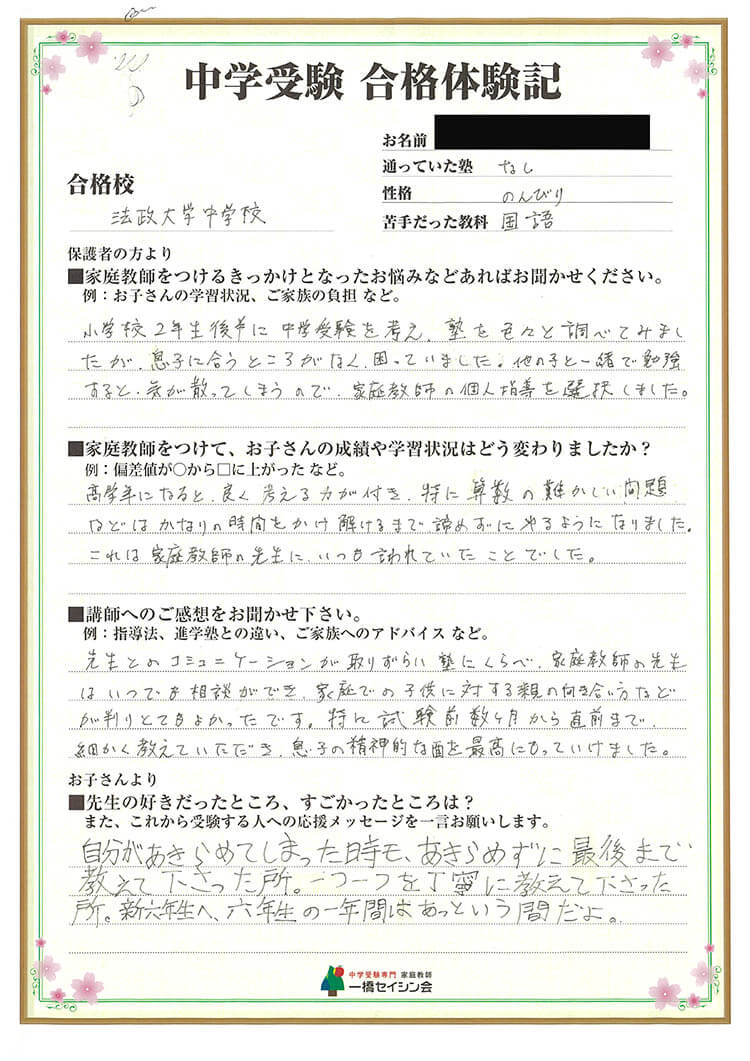 中学受験 合格体験記
お名前
通っていた塾 なし
合格校
性格 のんびり
法政大学中学校
苦手だった教科 国語
保護者の方より
■家庭教師をつけるきっかけとなったお悩みなどあればお聞かせください。
例：お子さんの学習状況、ご家族の負担 など。
小学校2年生後半に中学受験を考え、塾を色々と調べてみまし
たが、息子に合うところがなく、困っていました。他の子と一緒で勉強
すると、気が散ってしまうので、家庭教師の個人指導を選択しました。
■家庭教師をつけて、お子さんの成績や学習状況はどう変わりましたか？
例：偏差値が○から□に上がった など。
高学年になると、良く考える力が付き、特に算数の難かしい問題
などはかなりの時間をかけ解けるまで諦めずにやるようになりました。
これは家庭教師の先生に、いつも言われていたことでした。
■講師へのご感想をお聞かせ下さい。
例：指導法、進学塾との違い、ご家族へのアドバイス など。
先生とのコミュニケーションが取りずらい塾にくらべ、家庭教師の先生
はいつでも相談ができ、家庭での子供に対する親の向き合い方など
が判りとてもよかったです。特に試験前数ヶ月から直前まで、
細かく教えていただき、息子の精神的な面を最高にもっていけました。
お子さんより
■先生の好きだったところ、すごかったところは？
また、これから受験する人への応援メッセージを一言お願いします。
自分があきらめてしまった時も、あきらめずに最後まで
教えて下さった所。一つ一つを丁寧に教えて下さった
所。新六年生へ、六年生の一年間はあっという間だよ。
中学受験専門 家庭教師
一橋セイシン会